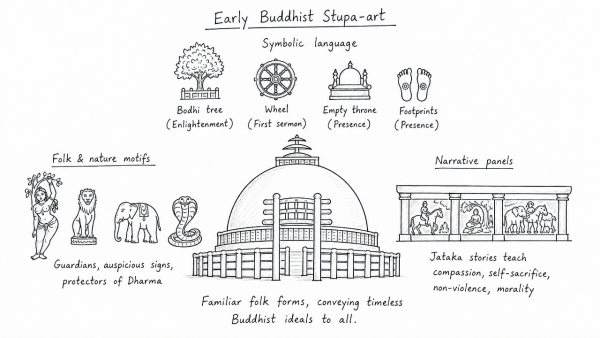 Early Buddhist Stupa-art
Symbolic language
Bodhi tree
(Enlightenment)
Wheel
(First sermon)
Empty throne
(Presence)
Footprints
(Presence)
Folk & nature motifs
Guardians, auspicious signs,
protectors of Dharma
Narrative panels
Jataka stories teach
compassion, self-sacrifice,
non-violence, morality
Familiar folk forms, conveying timeless
Buddhist ideals to all.